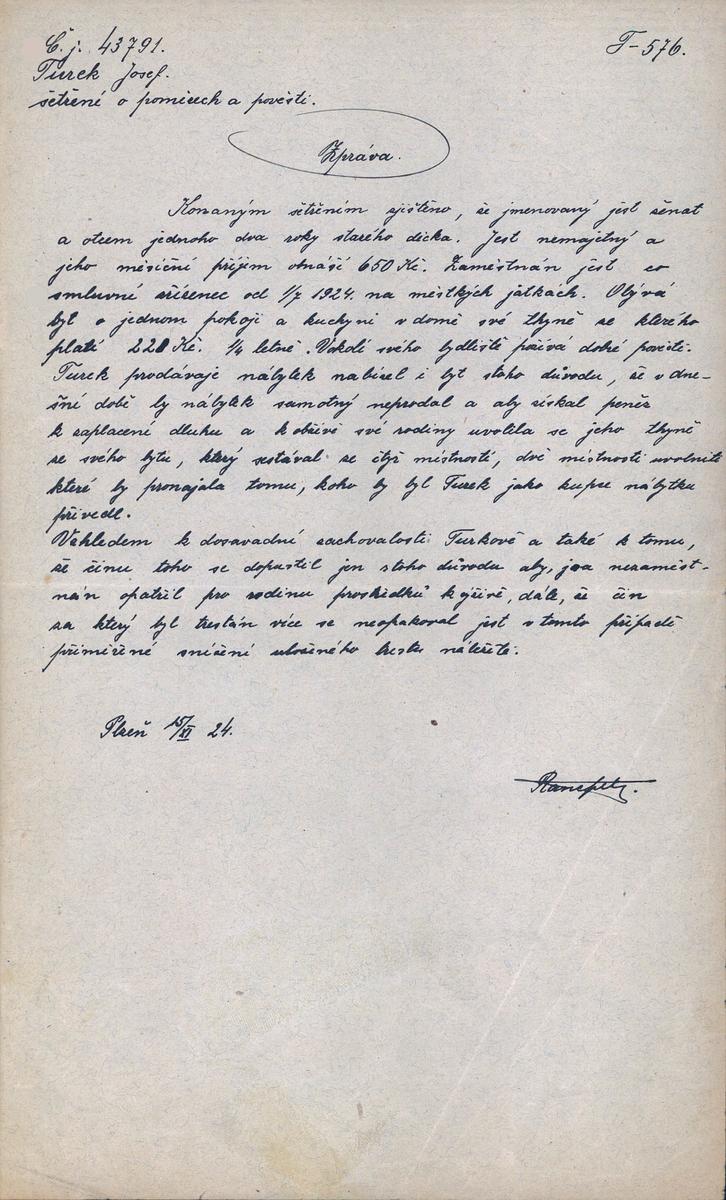 Č.j. 43791. T-576.
Turek Josef.
šetření o poměrech a pověsti.
Zpráva.
Konaným šetřením zjištěno, že jmenovaný jest ženat
a otcem jednoho dva roky starého dícka. Jest nemajetný a
jeho měsíční příjem obnáší 650 Kč. Zaměstnán jest co
smluvní zřízenec od 1/7 1924. na městkých jatkách. Obývá
byt o jednom pokoji a kuchyni v domě své tchyně ze kterého
platí 220 Kč. 1/4 letně. V okolí svého bydliště požívá dobré pověsti.
Turek prodávaje nábytek nabízel i byt stoho důvodu, že v dne-
šní době by nábytek samotný neprodal a aby získal peněz
k zaplacení dluhu a k obživě své rodiny uvolila se jeho tchyně
ze svého bytu, který sestával ze čtyř místností, dvě místnosti uvolniti
které by pronajala tomu, koho by byl Turek jako kupce nábytku
přivedl.
Vzhledem k dosavadní zachovalosti Turkově a také k tomu,
že činu toho se dopustil jen stoho důvodu aby, jsa nezaměst-
nán opatřil pro rodinu prostředků k výživě, dále, že čin
za který byl trestán více se neopakoval jest v tomto případě
přiměřené snížení uloženého trestu náležité.
Plzeň 15/XI 24.